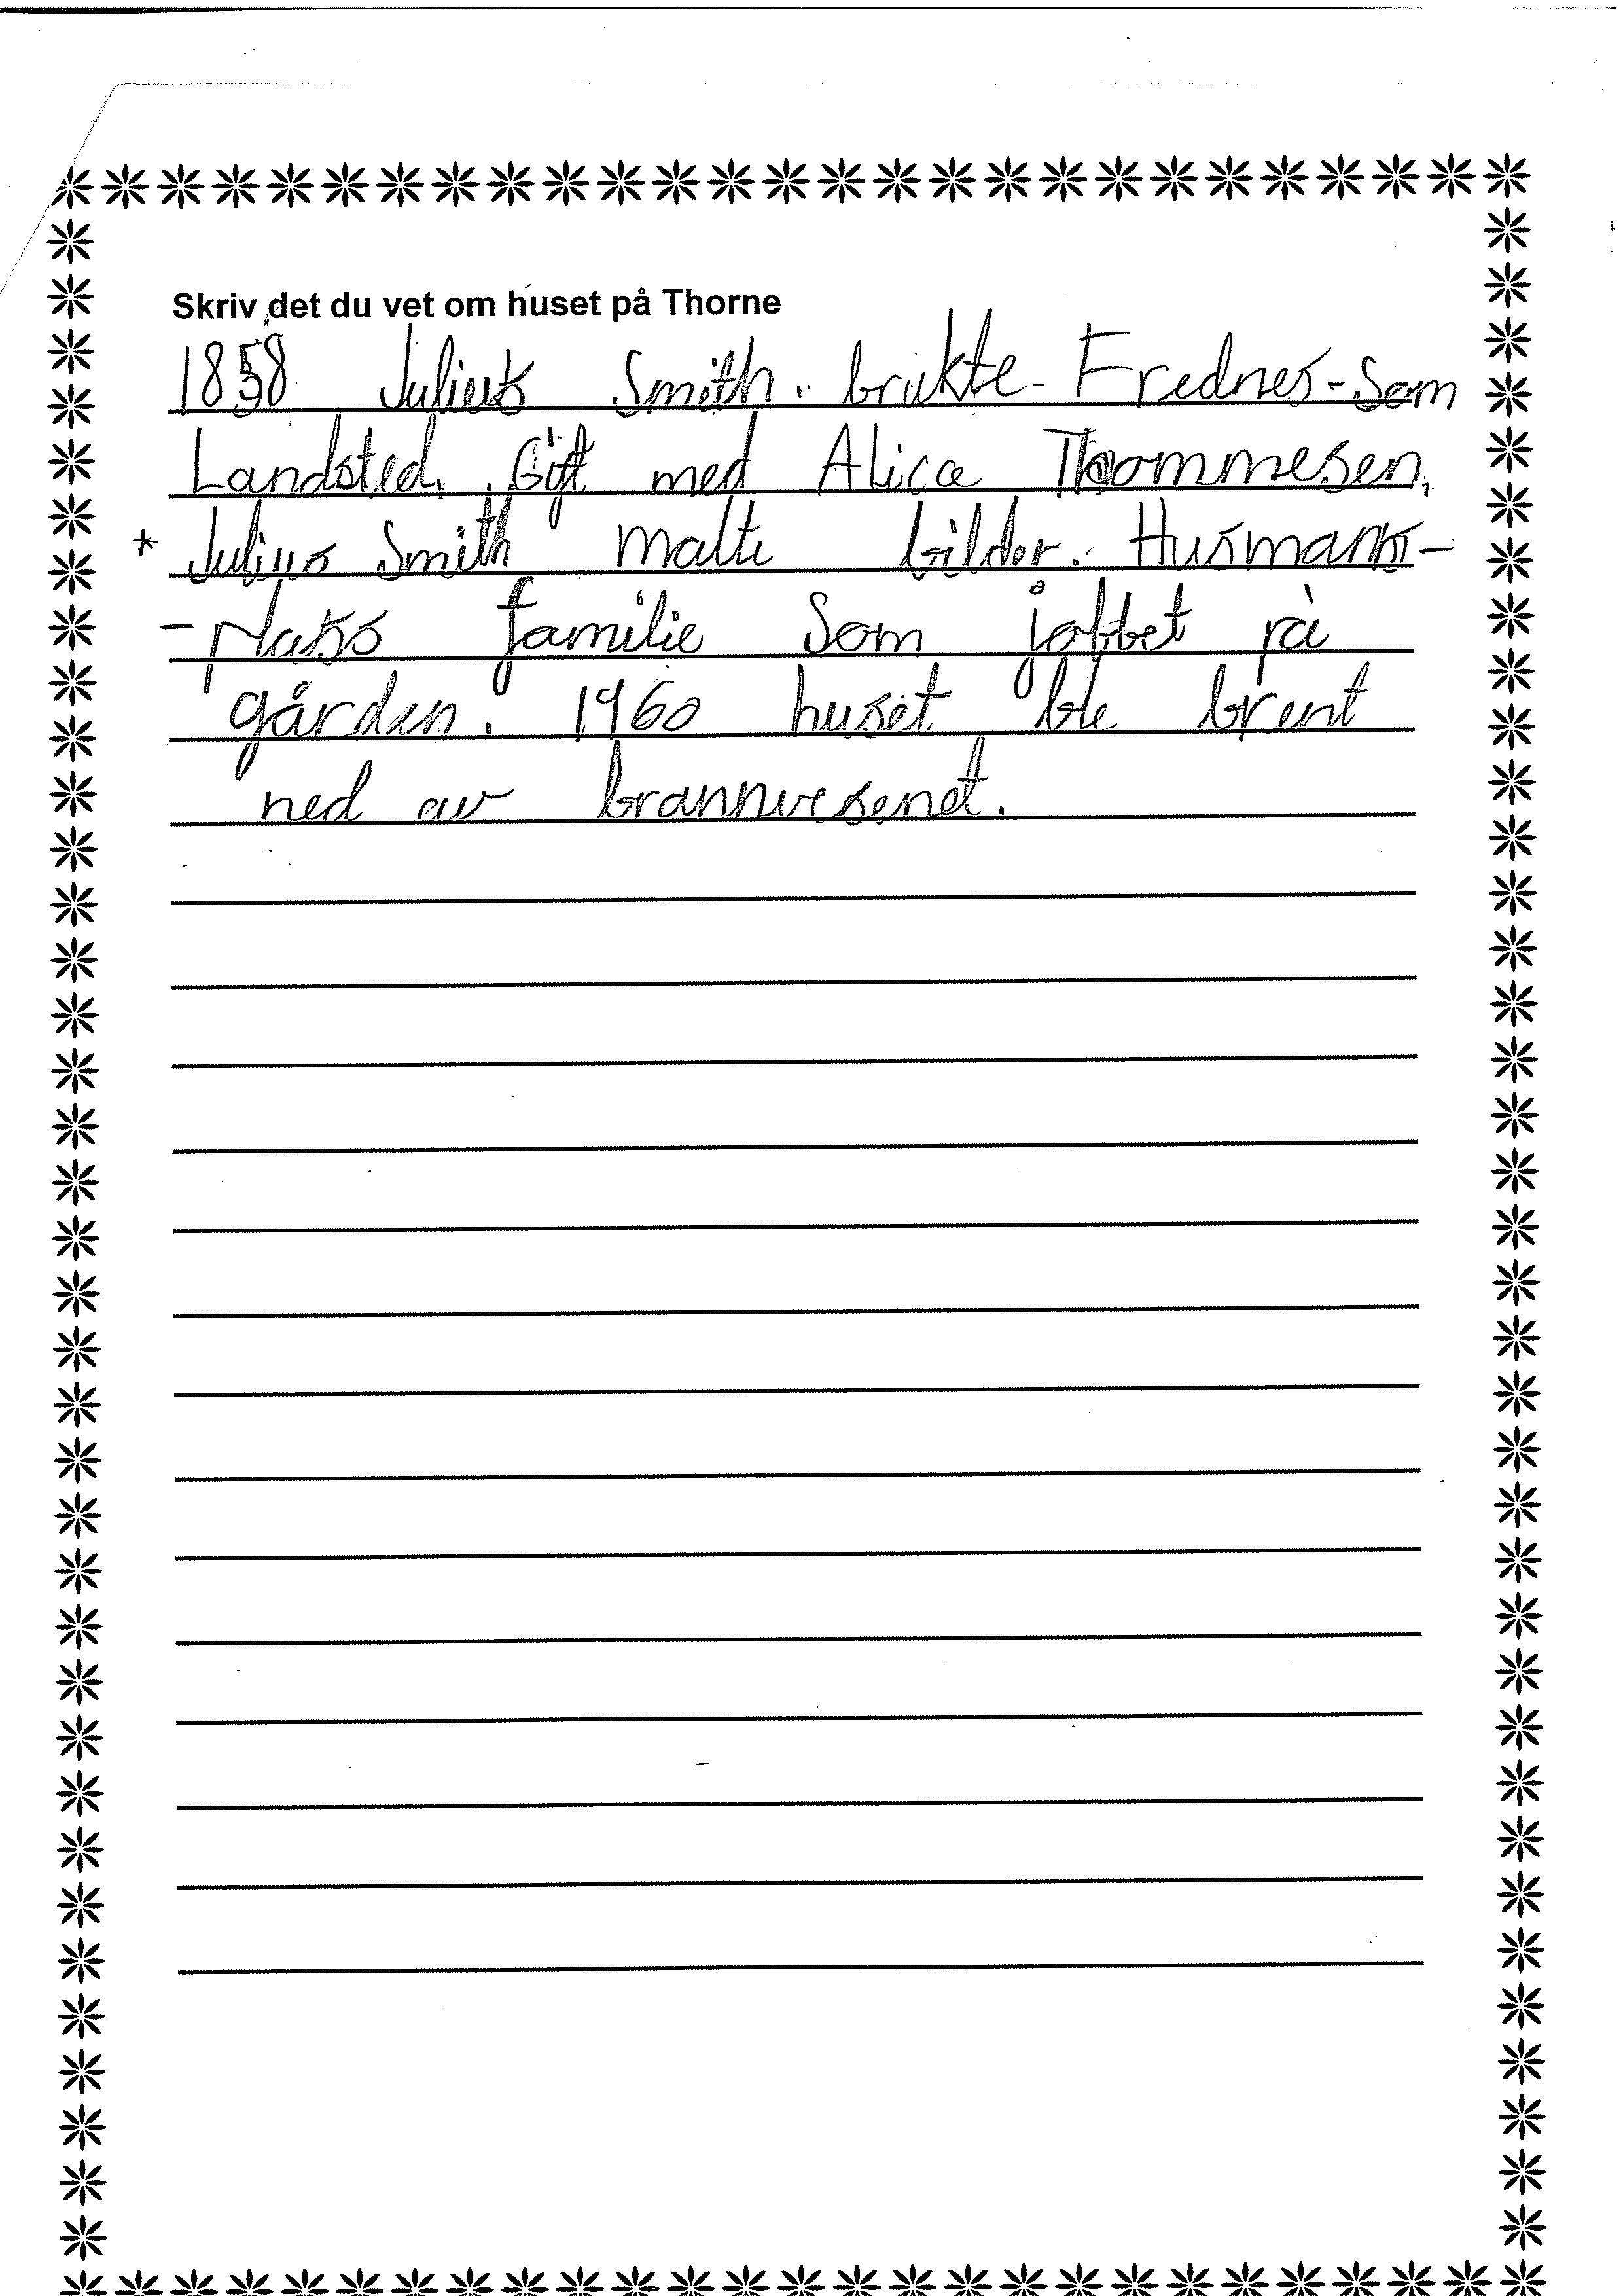 Skriv det du vet om huset på Thorne
1858 Julius Smith. brukte - Frednes - som
Landsted. Gift med Alice Thommesen.
* Julius Smith malte bilder. Husmans-
- plass familie som jobbet på
gården. 1960 huset ble brent
ned av brannvesenet.